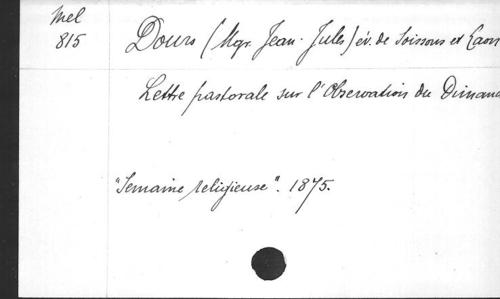 Mel
815
Dours (Mgr. Jean-Jules) év. de Soissons et Laon
Lettre pastorale sur l'Observation du Dimanc
"Semaine religieuse". 1875.